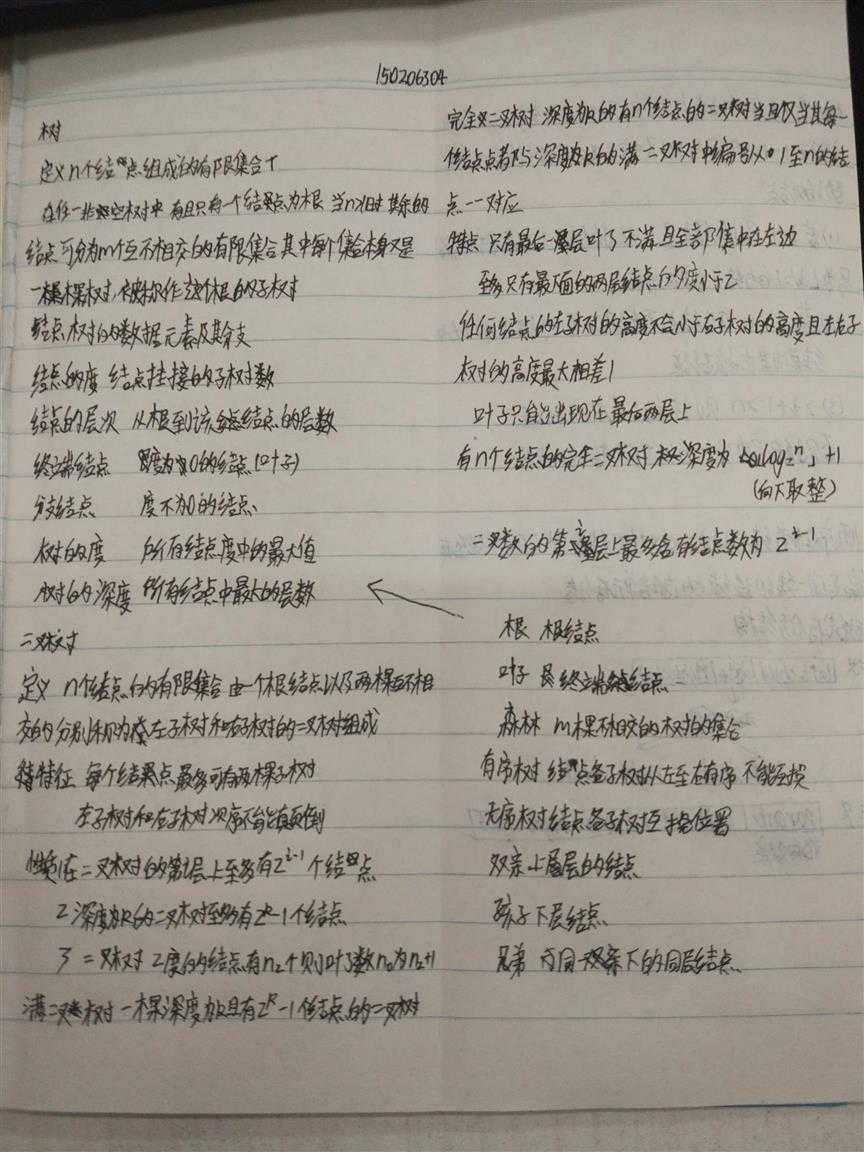 150206304
树
定义 n个结点组成的有限集合T
在任一非空树中 有且只有一个结点为根 当n>1时 其余的
结点可分为m个互不相交的有限集合 其中每个集合本身又是
一棵树 被称作这个根的子树
结点 树的数据元素及其分支
结点的度 结点挂接的子树数
结点的层次 从根到该结点的层数
终端结点 度为0的结点(叶子)
分支结点 度不为0的结点
树的度 所有结点度中的最大值
树的深度 所有结点中最大的层数
二叉树
定义 n个结点的有限集合 由一个根结点以及两棵互不相
交的分别称为左子树和右子树的二叉树组成
特征 每个结点最多可有两棵子树
左子树和右子树次序不能颠倒
性质1在二叉树的第i层上至多有2^i-1个结点
2 深度为k的二叉树至多有2^k-1个结点
3 二叉树 2度的结点有n₂个则叶子数n₀为n₂+1
满二叉树 一棵深度为k且有2^k-1个结点的二叉树
完全二叉树 深度为k的有n个结点的二叉树当且仅当其每一
个结点都与深度为k的满二叉树中编号从1至n的结
点一一对应
特点 只有最后一层叶子不满且全部集中在左边
至多只有最下面的两层结点的度小于2
任何结点的左子树的高度不会小于右子树的高度且左右子
树的高度最大相差1
叶子只能出现在最后两层上
有n个结点的完全二叉树 深度为 ⌊log₂n⌋+1
(向下取整)
二叉数的第i层上最多含有结点数为 2^i-1
根 根结点
叶子 终端结点
森林 m棵不相交的树的集合
有序树 结点各子树从左至右有序 不能互换
无序树 结点各子树可互换位置
双亲 上层的结点
孩子 下层结点
兄弟 同一双亲下的同层结点